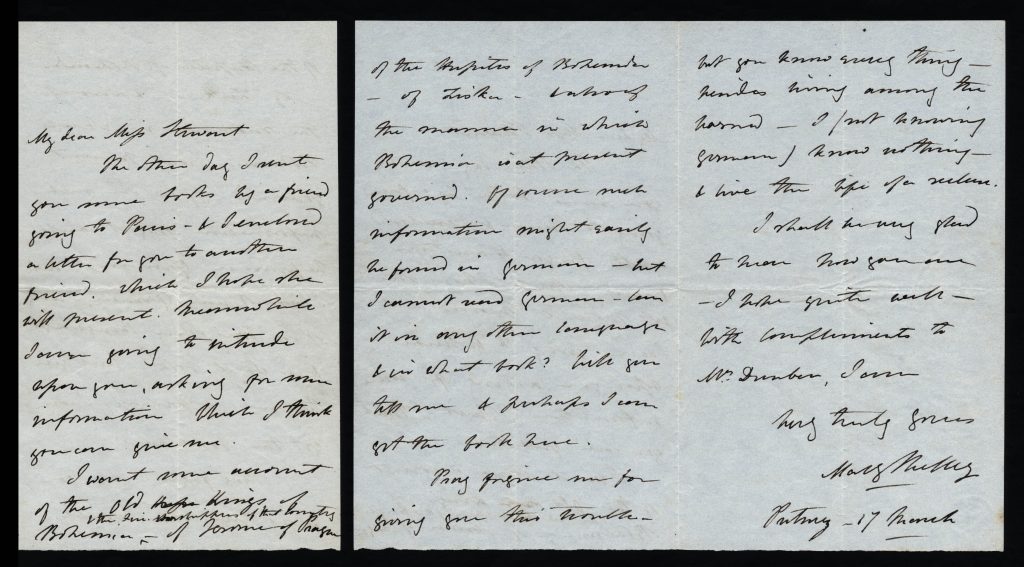 My dear Miss Stewart
The other day I sent
you some books by a friend
going to Paris - & I enclosed
a letter for you to another
friend. which I hope she
will present. Meanwhile
I am going to intrude
upon you, asking for some
information Which I think
you can give me.
I want some account
of the old Kings of
& the fire worshippers of that country
Bohemia, - of Jerome of Prague
of the Hussites of Bohemia
- of Ziska - & also of
the manner in which
Bohemia is at present
governed. Of course such
information might easily
be found in German - but
I cannot read German - Can
it in any other language
& in what book? Will you
tell me & perhaps I can
get the book here.
Pray forgive me for
giving you this trouble -
but you know every thing -
besides living among the
learned - I (not knowing
German) know nothing -
& live the life of a recluse.
I shall be very glad
to hear how you are
- I hope quite well -
With compliments to
Mr. Dunbar, I am
Very truly yours
Mary Shelley
Putney - 17 March